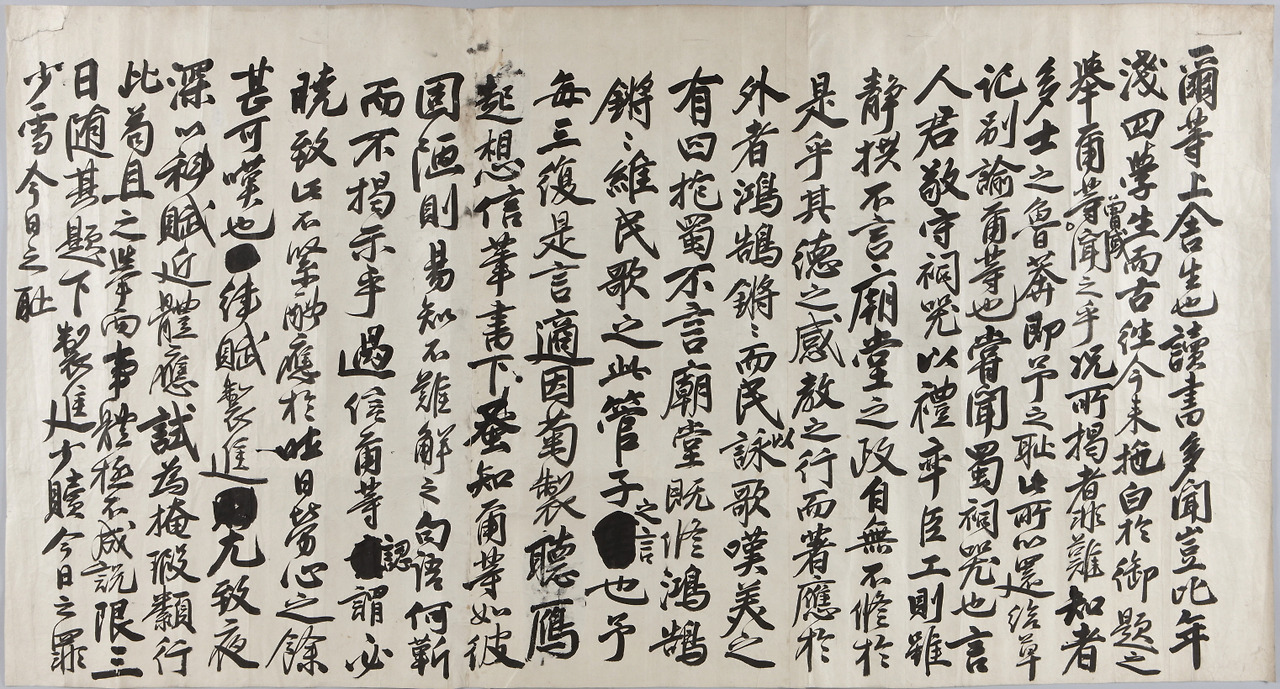 爾等上舍生也讀書多聞豈比年
淺四學生而古往今來拖白於御題之
舉爾等曾或聞之乎況所揭者非難知者
多士之魯莽即予之恥此所以還給草
記别諭爾等也嘗聞蜀祠器也言
人君敬守祠器以禮率臣工則雖
靜拱不言廟堂之政自無不修於
是乎其德之感教之行而著應於
外者鴻鵠鏘〻而民詠以歌嘆美之
有曰抱蜀不言廟堂既修鴻鵠
鏘〻維民歌之此管子之言也予
每三復是言適因菊製聽鴈
起想信筆書下蚤知爾等如彼
固陋則易知不難解之句語何靳
而不揭示乎過信爾等認謂必
曉致此不緊酬應於吐日勞心之餘
甚可嘆也徒賦製進尤致夜
深以科賦近體應試為掩瑕纇行
此苟且之舉而事體極不成說限三
日隨其題下製進少贖今日之罪
少雪今日之恥